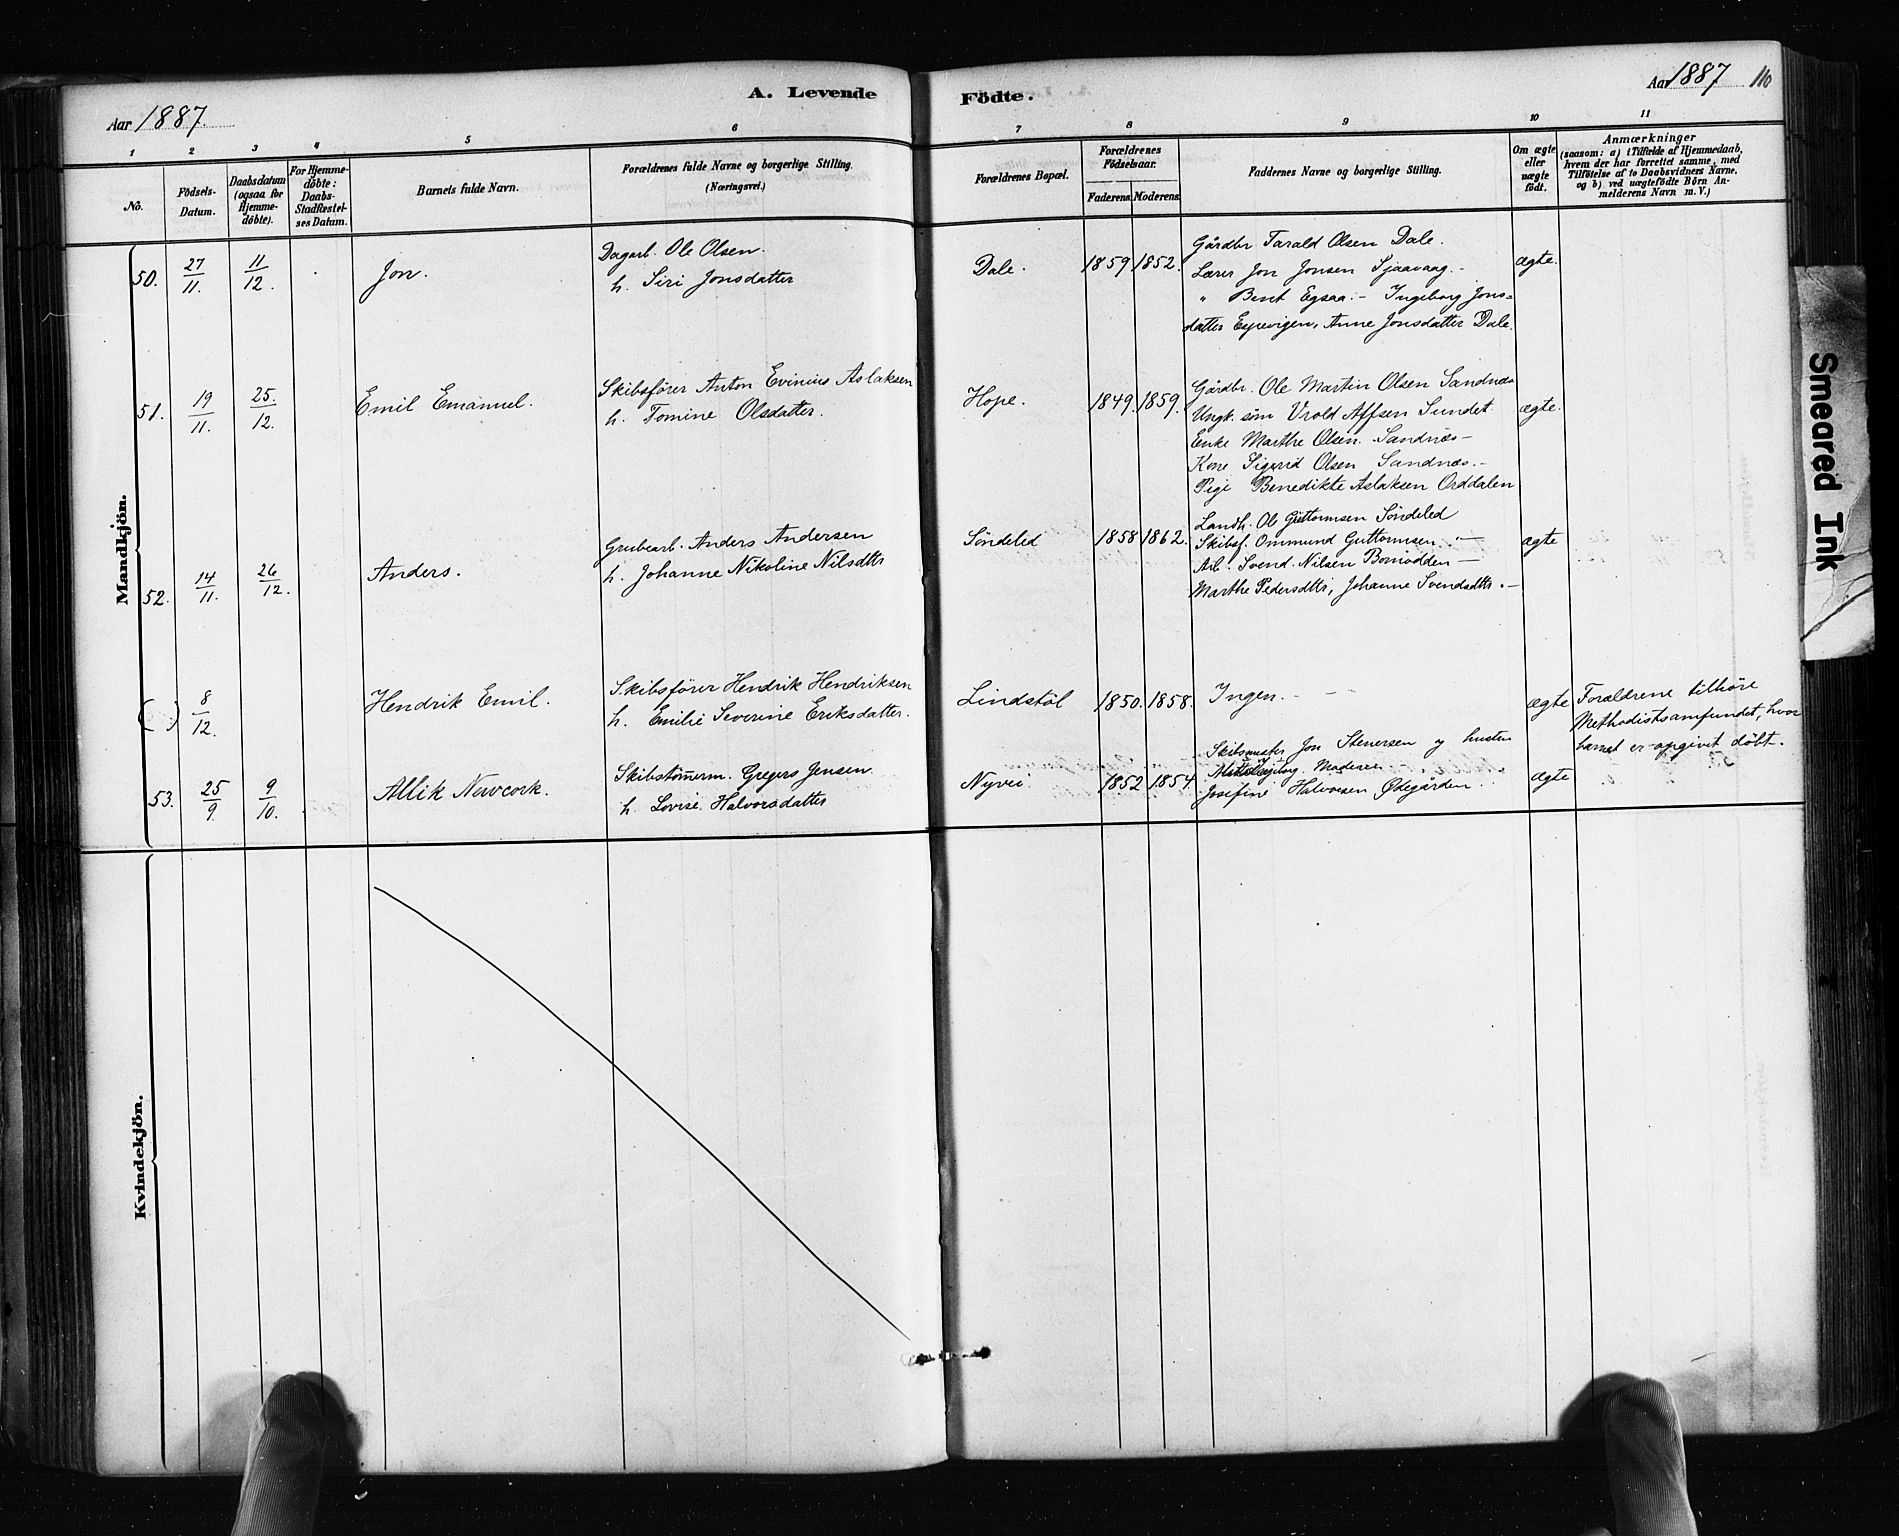 A. Levende Födte.
Aar 1887.
Aar 1887 110
1 2 3 4 5 6 7 8 9 10 11
No.
Födsels-Datum.
Daabsdatum (ogsaa for Hjemmedöbte).
For Hjemmedöbte: Daabs-Stadfæstelses Datum.
Barnets fulde Navn.
Forældrenes fulde Navne og borgerlige Stilling. (Næringsvei.)
Forældrenes Bopæl.
Forældrenes Födselsaar.
Faderens. Moderens.
Faddernes Navne og borgerlige Stilling.
Om ægte eller uægte födt.
Anmærkninger
(saasom: a) i Tilfælde af Hjemmedaab, hvem der har forrettet samme, med Tilföielse af to Daabsvidners Navne, og b) ved uægtefödte Börn Anmelderens Navn m. V.)
Mandkjön.
50. 27/11. 11/12. Jon.
Dagarb. Ole Olsen.
h. Siri Jonsdatter
Dale. 1859 1852.
Gårdbr. Tarald Olsen Dale.
Lærer Jon Jonsen Sjaavaag.-
" Bent Egsaa.- Ingeborg Jons=
datter Espevigen, Anne Jonsdatter Dale.
ægte.
51. 19/11. 25./12. Emil Emanuel.
Skibsförer Anton Evinius Aslaksen
h. Tomine Olsdatter.
Hope. 1849. 1859.
Gårdbr. Ole Martin Olsen Sandnæs
Ungk. søm Vrold Alfsen Sundet.
Enke Marthe Olsen. Sandnæs-
Kone Sigrid Olsen Sandnæs.-
Pige Benedikte Aslaksen Orddalen
ægte.
52. 14/11. 26/12. Anders.
Grubearb. Anders Andersen
h. Johanne Nikoline Nilsdttr
Söndeled 1858 1862.
Landh. Ole Guttormsen Söndeled
Skibsf. Ommund Guttormsen "-
Arb. Svend. Nilsen -
Marthe Pedersdttr, Johanne Svendsdttr.-
ægte
( ) 8/12. Hendrik Emil.
Skibsförer Hendrik Hendriksen
h. Emilie Severine Eriksdatter.
Lindstöl 1850. 1858.
Ingen.-
ægte
Forældrene tilhöre
Methodistsamfundet, hvor
barnet er opgivet döbt.
53. 25/9. 9/10. Allik Newcork.
Skibstömerm. Gregers Jensen.
h. Lovise Halvorsdatter
Nyvei. 1852 1854.
Skibsmster Jon Stenersen og hustru
Ingeborg. Moderen -
Josefine Halvorsen Ödegården.
ægte
Kvindekjön.
Smeared Ink